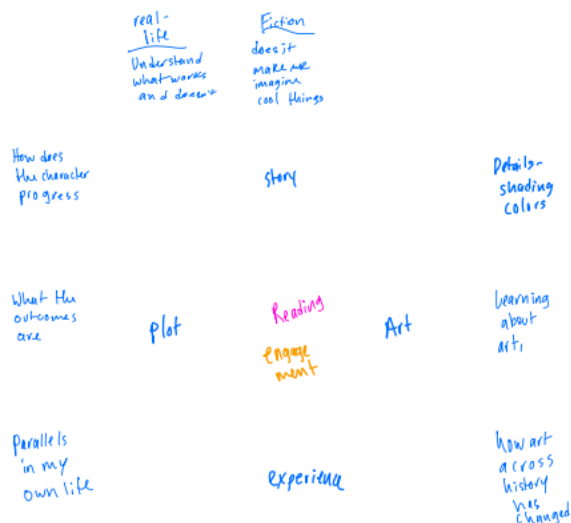 real-
life
Understand
what works
and doesn't
Fiction
does it
make me
imagine
cool things
How does
the character
progress
story
Details-
shading
colors
What the
outcomes
are
plot
Reading
engage
ment
Art
learning
about
art,
Parallels
in my
own life
experience
how art
across
history
has
changed